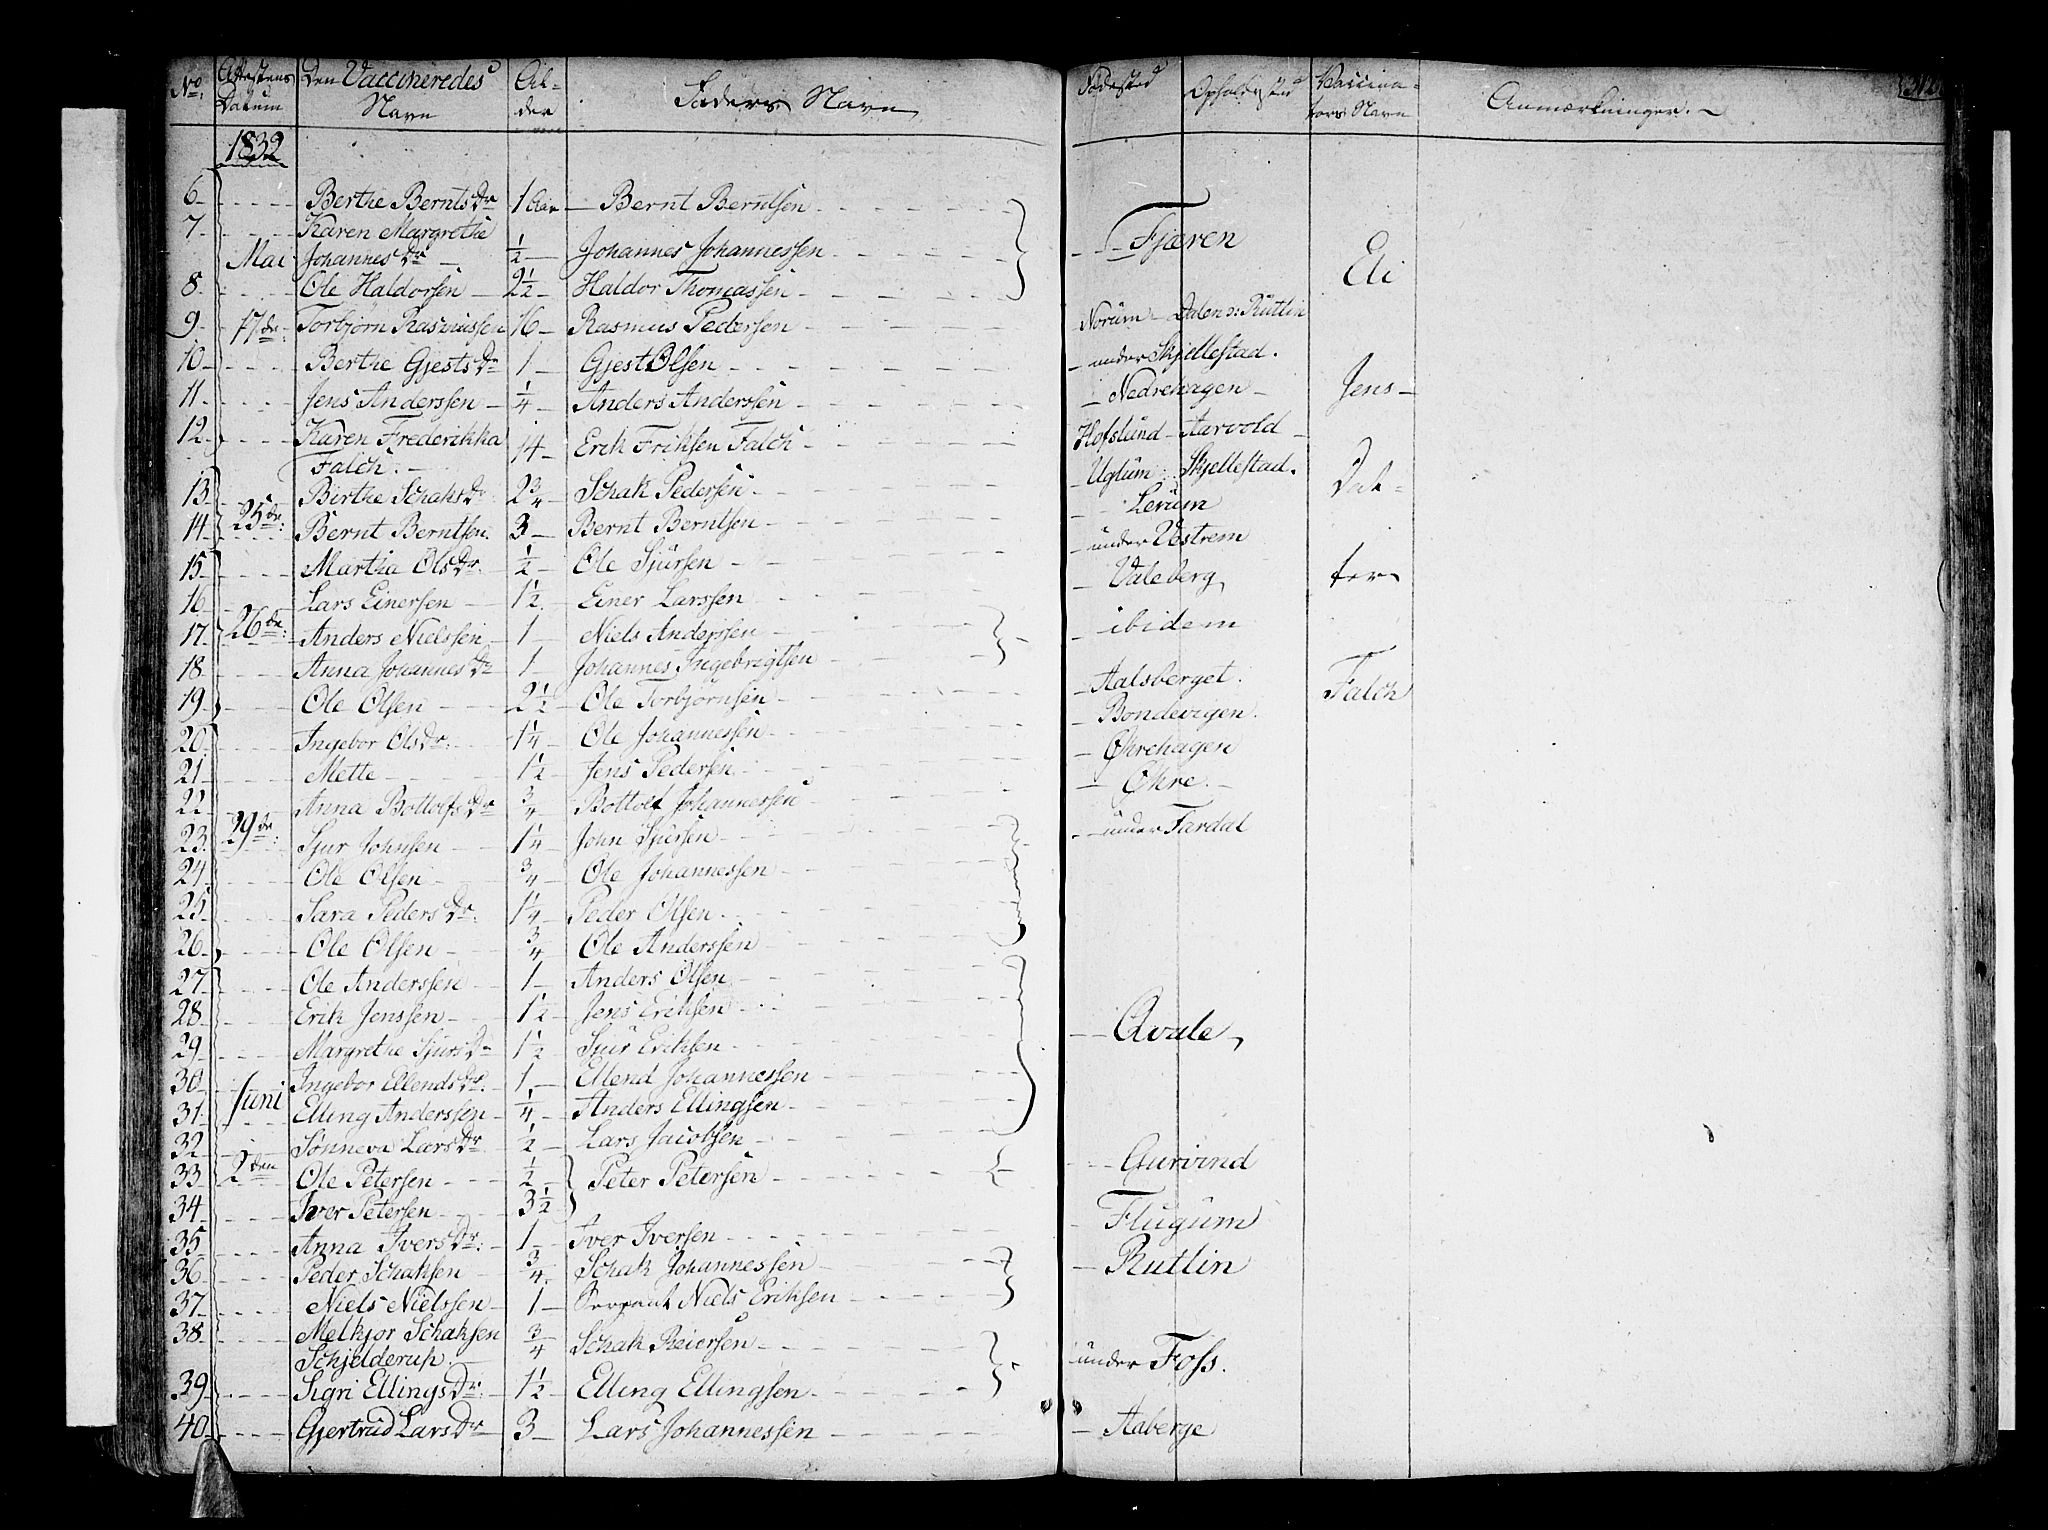 No. Attestens Datum Den Vaccineredes Navn Alder Faders Navn Fødested Opholdsted Vaccinators Navn Anmærkninger. 312
1832
6 Berthe BerntsDr 1 Aar Bernt Berntsen
7 Karen Margrethe
Mai JohannesDr 1/2 Johannes Johannessen Fjæren
8 Ole Haldorsen 2 1/2 Haldor Thomassen Eli
9 17de Torbjørn Rasmussen 16 Rasmus Pedersen Norum Dalen v: Rutlin
10 Berthe GjestsDr 1 Gjest Olsen under Skjellestad.
11 Jens Anderssen 1/4 Anders Anderssen Nedrehagen Jens
12 Karen Frederikka 14 Erik Friksen Falch Hofslund Aarvold
Falch. Uglum Skjellestad.
13 Birthe SchaksDr 2 3/4 Schak Pedersen Lerum Dat-
14 25de Bernt Berntsen 3 Bernt Berntsen under Vestrem
15 Martha OlsDr 1/2 Ole Sjursen Valeberg ter
16 Lars Einersen 1 1/2 Einer Larssen
17 26de Anders Nielssen 1 Niels Anderssen ibidem
18 Anna JohannesDr 1 Johannes Ingebrigtsen Aalsberget.
19 Ole Olsen 2 1/2 Ole Torbjørnsen Bondevigen. Falch
20 Ingebor OlsDr 1 1/4 Ole Johannessen Øhrehagen
21 Mette 1 1/2 Jens Pedersen Øhre.
22 Anna BottolfsDr 3/4 Bottolf Johannessen
23 29de Sjur Johnsen 1 1/4 John Sjursen under Fardal
24 Ole Olsen 3/4 Ole Johannessen
25 Sara PedersDr 1 1/4 Peder Olsen
26 Ole Olsen 3/4 Ole Anderssen
27 Ole Anderssen 1 Anders Olsen
28 Erik Jenssen 1 1/2 Jens Eriksen Qvale
29 Margrethe SjursDr 1 1/2 Sjur Eriksen
30 Juni Ingebor EllendsDr 1 Ellend Johannessen
31 Elling Anderssen 1/4 Anders Ellingsen
32 Sønneva LarsDr 1/2 Lars Jacobsen
33 2den Ole Petersen 1/2 Peter Petersen Gurvind
34 Iver Petersen 3 1/2 Flugum
35 Anna IversDr 1 Iver Iversen
36 Peder Schaksen 3/4 Schak Johannessen Rutlin
37 Niels Nielssen 1 Sergeant Niels Eriksen
38 Melkjor Schaksen 3/4 Schak Reiersen under Foss.
Schjelderup.
39 Sigri EllingsDr 1 1/2 Elling Ellingsen
40 Gjertrud LarsDr 3 Lars Johannessen Aaberge